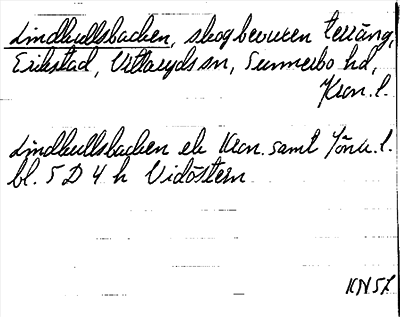 Lindhullsbacken, skogbevuxen terräng,
Erikstad, Vittaryds sn, Sunnerbo hd,
Kron. l.
Lindhullsbacken ek Kron. samt Jönk. l.
bl. 5 D 4 h Vidöstern
KN57